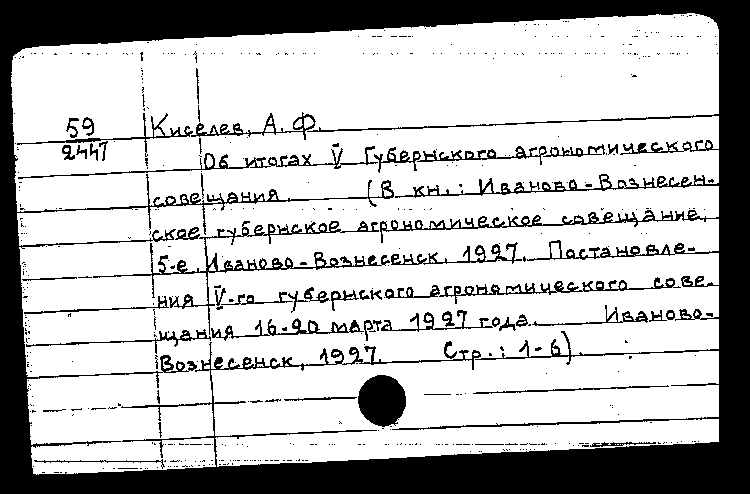 59
2447
Киселев, А. Ф.
Об итогах V Губернского агрономического
совещания. (В кн.: Иваново-Вознесен-
ское губернское агрономическое совещание,
5-е. Иваново-Вознесенск. 1927. Постановле-
ния V-го губернского агрономического сове-
щания 16-20 марта 1927 года. Иваново-
Вознесенск, 1927. Стр.: 1-6).